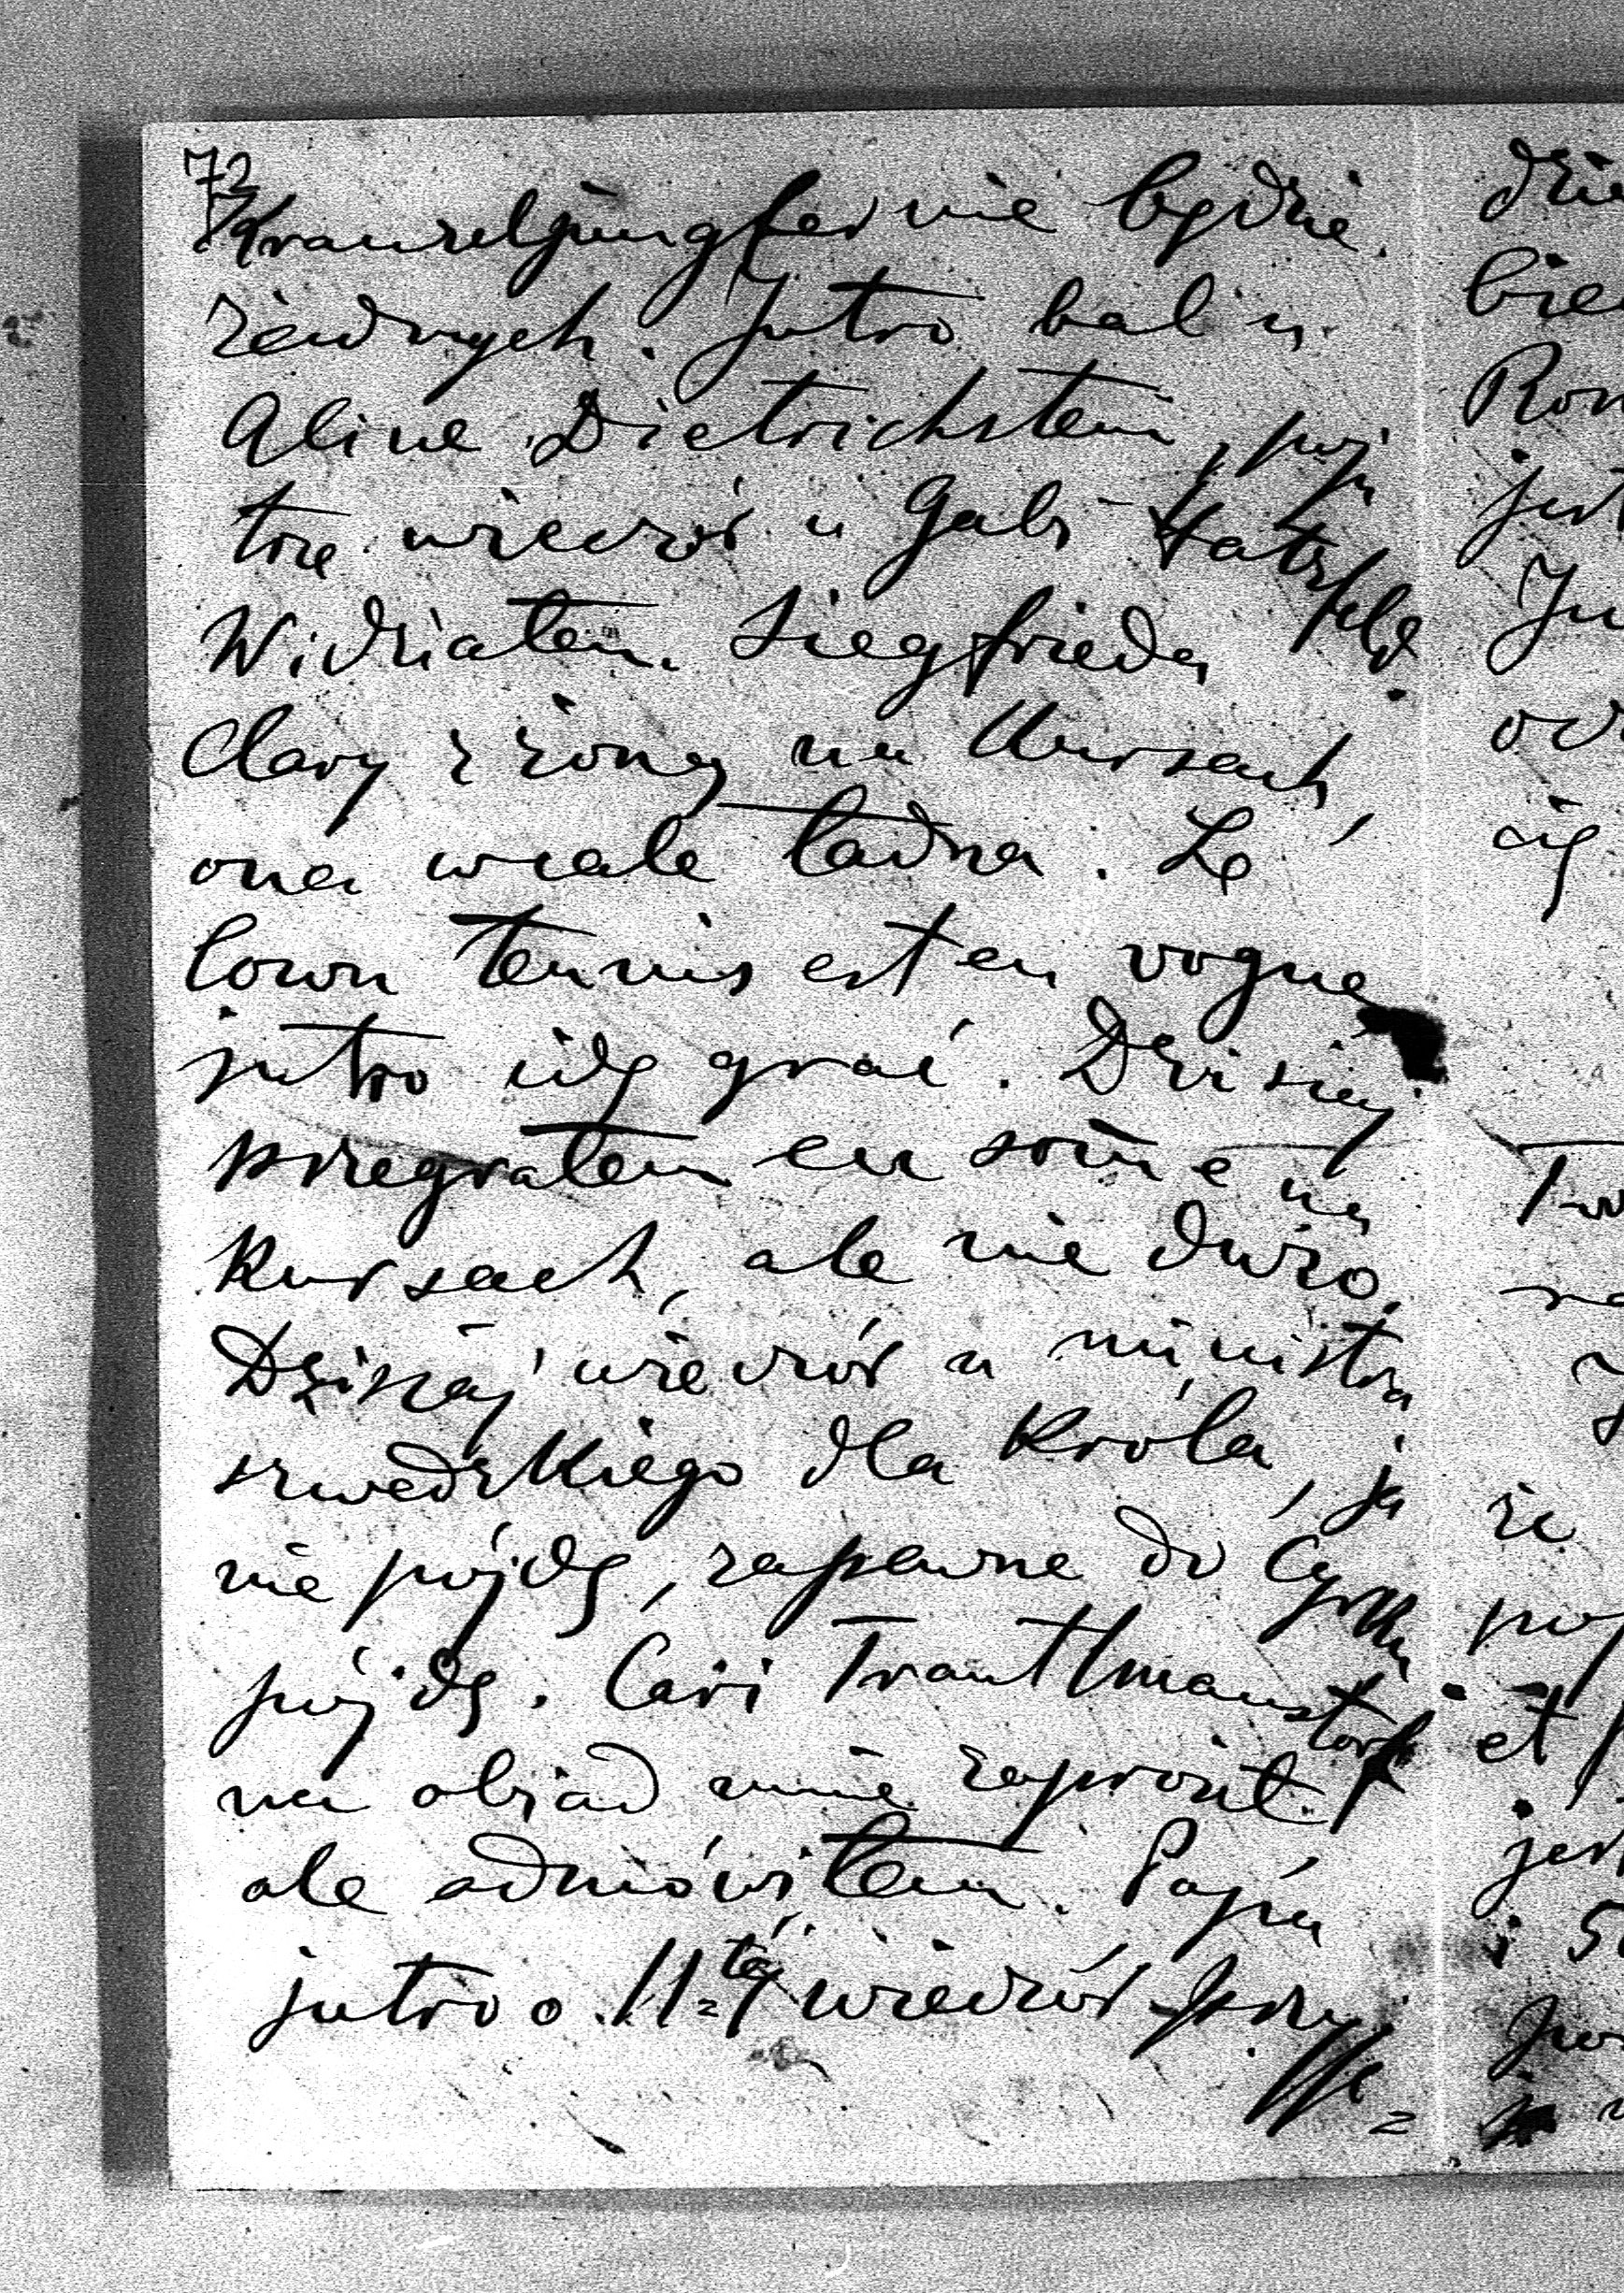 72
Kranzeljungfer nie będzie
żadnych. Jutro bal u
Aline Dietrichstein, poju
trze wieczór u Gabi Hatzfeld.
Widziałem Siegfrieda
Clary z żoną na Kursach,
ona wcale ładna. Le
lown tennis est en vogue
jutro idę grać. Dzisiaj
przegrałem en somme na
Kursach, ale nie dużo.
Dzisiaj wieczór u ministra
szwedzkiego dla Króla, ja
nie pójdę, zapewne do Cyrku
pójdę. Cari Trauttmanstorf
na obiad mnie zaprosił
ale odmówiłem. Papa
jutro o 11=tej wieczór przyj=